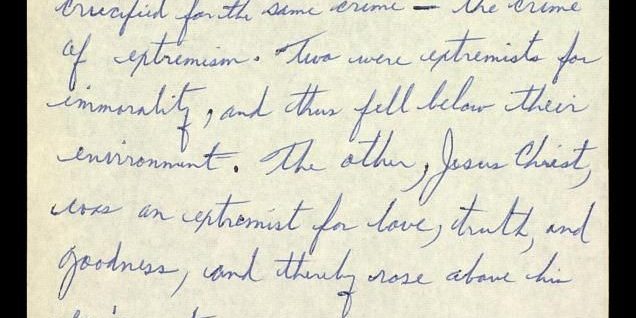 crucified for the same crime — the crime
of extremism. Two were extremists for
immorality, and thus fell below their
environment. The other, Jesus Christ,
was an extremist for love, truth, and
goodness, and thereby rose above his